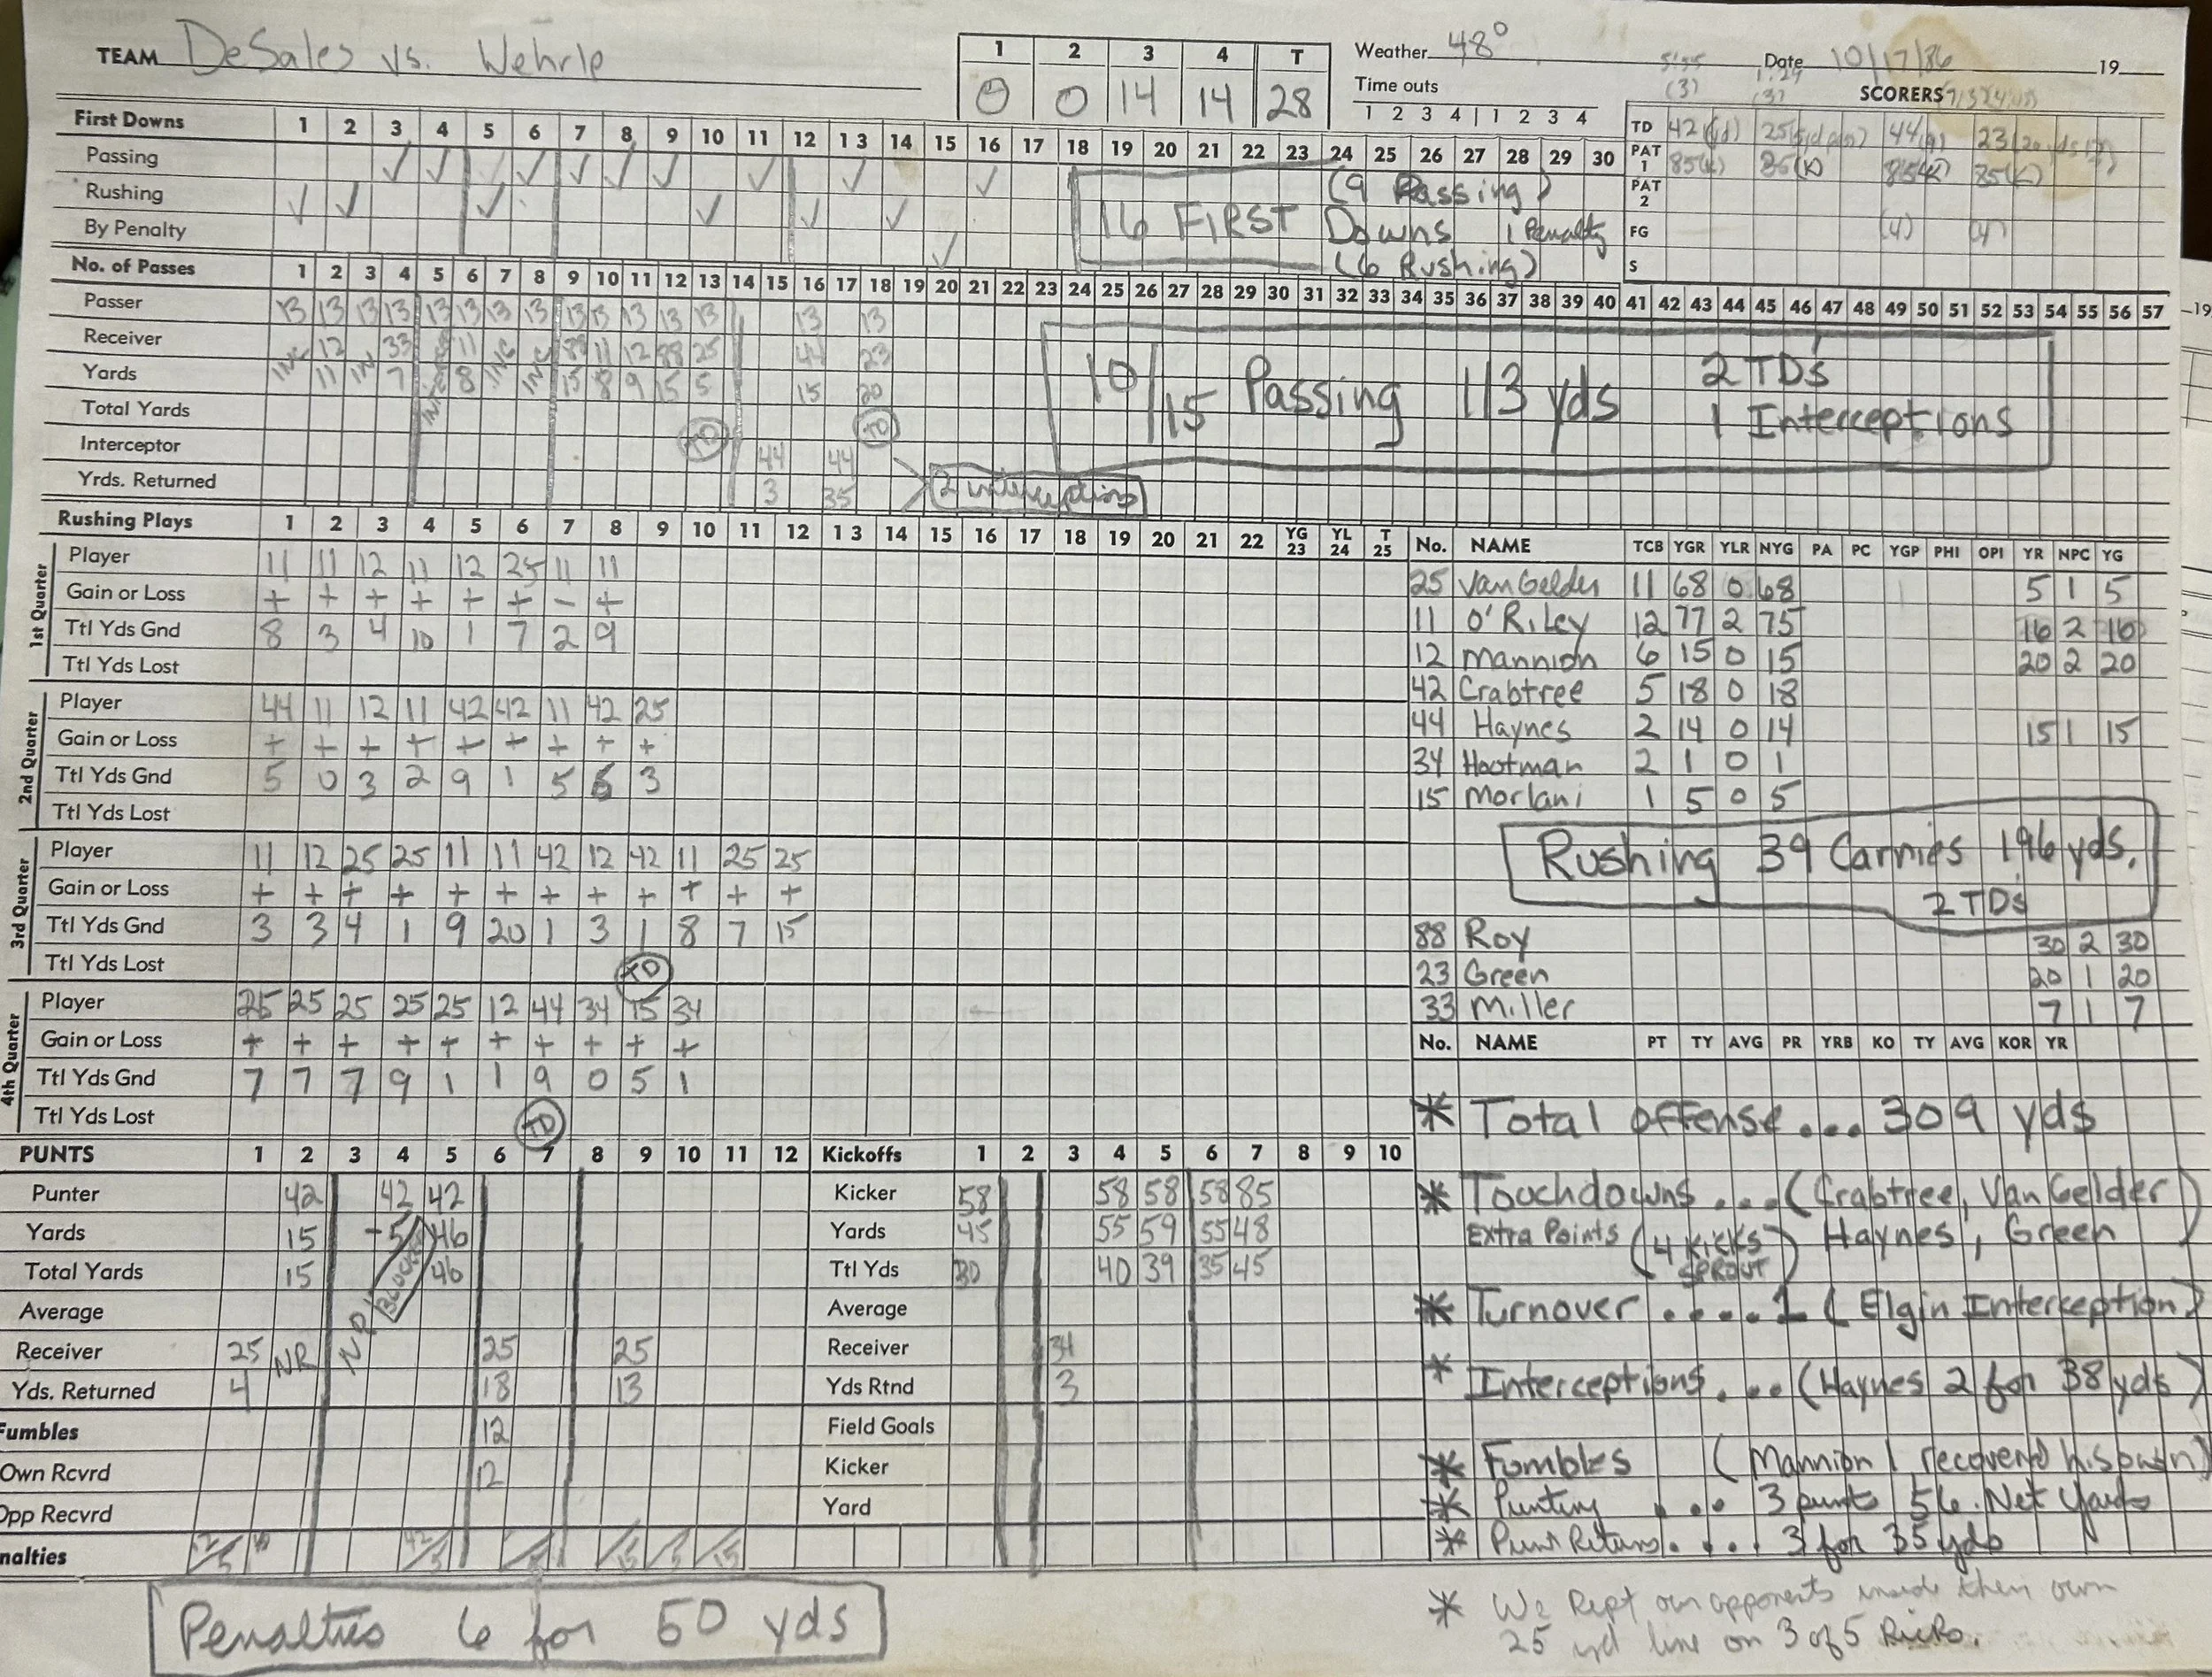 TEAM DeSales vs. Wehrle
1 2 3 4 T
0 0 14 14 28
Weather 48°
Date 10/17/86 19
Time outs
1 2 3 4 | 1 2 3 4
SCORERS
TD 42 25 44 23
PAT 1 85(K) 85(K) 85(K) 85(K)
PAT 2
FG (4) (4)
S
First Downs 1 2 3 4 5 6 7 8 9 10 11 12 13 14 15 16 17 18 19 20 21 22 23 24 25 26 27 28 29 30
Passing ✓ ✓ ✓ ✓ ✓ ✓ ✓ ✓ ✓
Rushing ✓ ✓ ✓ ✓ ✓ ✓
By Penalty ✓
16 FIRST Downs
(9 Passing)
1 Penalty
(6 Rushing)
No. of Passes 1 2 3 4 5 6 7 8 9 10 11 12 13 14 15 16 17 18 19 20 21 22 23 24 25 26 27 28 29 30 31 32 33 34 35 36 37 38 39 40 41 42 43 44 45 46 47 48 49 50 51 52 53 54 55 56 57
Passer 13 13 13 13 13 13 13 13 13 13 13 13 13 13 13
Receiver INC 12 IN 33 11 INC INC 88 11 12 88 25 44 23
Yards 11 7 8 15 8 9 15 5 15 20
Total Yards
Interceptor TD TD 44 44
Yrds. Returned 3 35
2 interceptions
10/15 Passing 113 yds
2 TD's
1 Interceptions
Rushing Plays 1 2 3 4 5 6 7 8 9 10 11 12 13 14 15 16 17 18 19 20 21 22 YG 23 YL 24 T 25
1st Quarter
Player 11 11 12 11 12 25 11 11
Gain or Loss + + + + + + - +
Ttl Yds Gnd 8 3 4 10 1 7 2 9
Ttl Yds Lost
2nd Quarter
Player 44 11 12 11 42 42 11 42 25
Gain or Loss + + + + + + + + +
Ttl Yds Gnd 5 0 3 2 9 1 5 6 3
Ttl Yds Lost
3rd Quarter
Player 11 12 25 25 11 11 42 12 42 11 25 25
Gain or Loss + + + + + + + + + + + +
Ttl Yds Gnd 3 3 4 1 9 20 1 3 1 8 7 15
Ttl Yds Lost TD
4th Quarter
Player 25 25 25 25 25 12 44 34 15 34
Gain or Loss + + + + + + + + + +
Ttl Yds Gnd 7 7 7 9 1 1 9 0 5 1
Ttl Yds Lost TD
No. NAME TCB YGR YLR NYG PA PC YGP PHI OPI YR NPC YG
25 VanGelder 11 68 0 68 5 1 5
11 O'Riley 12 77 2 75 16 2 16
12 Mannion 6 15 0 15 20 2 20
42 Crabtree 5 18 0 18
44 Haynes 2 14 0 14 15 1 15
34 Hootman 2 1 0 1
15 Morlani 1 5 0 5
Rushing 39 Carries 196 yds.
2 TDs
88 Roy 30 2 30
23 Green 20 1 20
33 Miller 7 1 7
No. NAME PT TY AVG PR YRB KO TY AVG KOR YR
PUNTS 1 2 3 4 5 6 7 8 9 10 11 12
Punter 42 42 42
Yards 15 -5 46
Total Yards 15 BLOCKED 46
Average
Receiver 25 NR NR 25 25
Yds. Returned 4 18 13
Fumbles 12
Own Rcvrd 12
Opp Recvrd
nalties 12/5 42/5 /5 /15 /5 /15
Kickoffs 1 2 3 4 5 6 7 8 9 10
Kicker 58 58 58 58 85
Yards 45 55 59 55 48
Ttl Yds 30 40 39 35 45
Average
Receiver 34
Yds Rtnd 3
Field Goals
Kicker
Yard
* Total offense... 309 yds
* Touchdowns....(Crabtree, VanGelder
Haynes, Green)
Extra Points (4 KICKS SPROUT)
* Turnover.....1 (Elgin Interception)
* Interceptions....(Haynes 2 for 38 yds)
* Fumbles (Mannion 1 recovered his own)
* Punting ... 3 punts 56 Net Yards
* Punt Returns.... 3 for 35 yds
* We kept our opponents inside their own
25 yd line on 3 of 5 kicks.
Penalties 6 for 50 yds